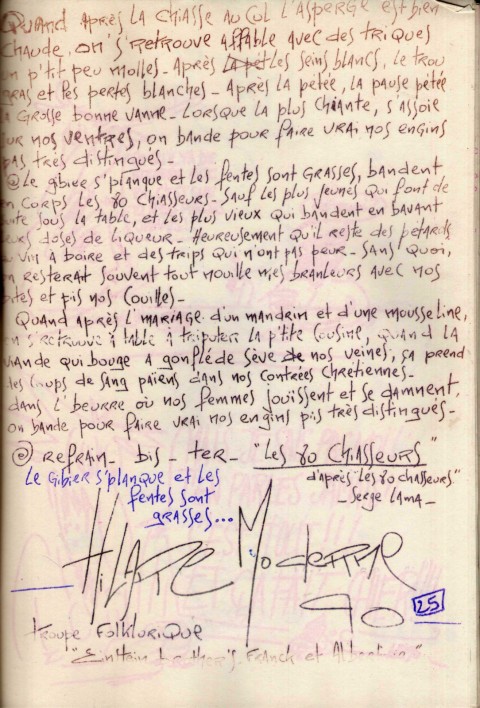 Quand après la chiasse au cul l'asperge est bien
chaude, on s'retrouve affable avec des triques
un p'tit peu molles - Après les seins blancs, le trou
gras et les pertes blanches - Après la pétée, la pause pétée
la grosse bonne vanne - Lorsque la plus chiante, s'assoie
sur nos ventres, on bande pour faire vrai nos engins
pas très distingués -
@ Le gibier s'planque et les fentes sont grasses, bandent
en corps les 80 chiasseurs - Sauf les plus jeunes qui font de
suite sous la table, et les plus vieux qui bandent en bavant
leurs doses de liqueur - Heureusement qu'il reste des pétards
du vin à boire et des trips qui n'ont pas peur - Sans quoi,
on resterait souvent tout mouillé mies branleurs avec nos
bites et pis nos couilles -
Quand après l'mariage d'un mandrin et d'une mousseline,
on s'retrouve à table à tripoter la p'tite cousine, quand la
viande qui bouge a gonflé de sève nos veines, ça prend
des coups de sang païens dans nos contrées chrétiennes -
dans l'beurre où nos femmes jouissent et se damnent,
on bande pour faire vrai nos engins pis très distingués -
@ Refrain - bis - ter - "Les 80 Chiasseurs"
d'après "Les 80 chasseurs"
- Serge Lama -
Le gibier s'planque et les
fentes sont
grasses...
90
25
troupe folklorique